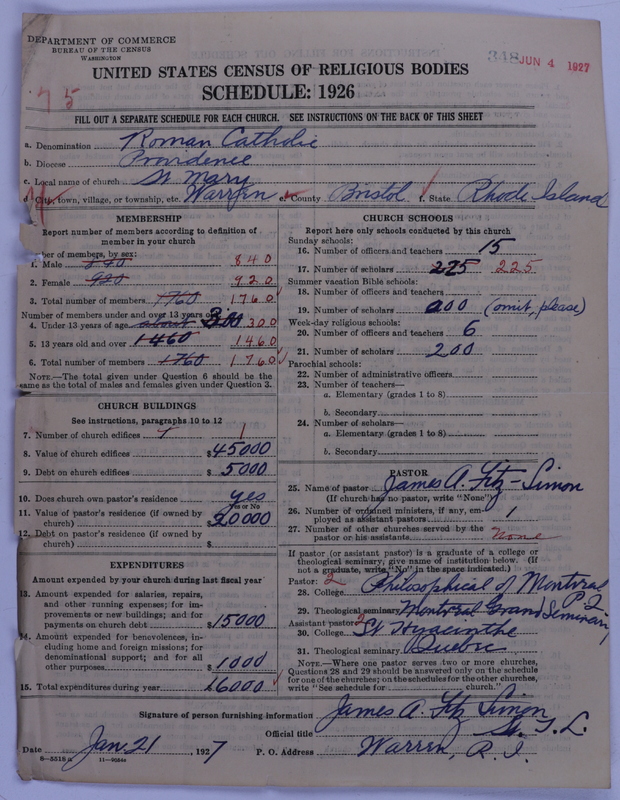 DEPARTMENT OF COMMERCE
BUREAU OF THE CENSUS
WASHINGTON
348 JUN 4 1927
UNITED STATES CENSUS OF RELIGIOUS BODIES
SCHEDULE: 1926
75
FILL OUT A SEPARATE SCHEDULE FOR EACH CHURCH. SEE INSTRUCTIONS ON THE BACK OF THIS SHEET
a. Denomination Roman Catholic
b. Diocese Providence
c. Local name of church St Mary
d. City, town, village, or township, etc. Warren e. County Bristol f. State Rhode Island
MEMBERSHIP
Report number of members according to definition of
member in your church
ber of members, by sex:
1. Male 840 840
2. Female 920 920
3. Total number of members 1760 1760
Number of members under and over 13 years
4. Under 13 years of age about 300 300
5. 13 years old and over 1460 1460
6. Total number of members 1760 1760
NOTE.—The total given under Question 6 should be the
same as the total of males and females given under Question 3.
CHURCH BUILDINGS
See instructions, paragraphs 10 to 12
7. Number of church edifices 1 1
8. Value of church edifices $45000
9. Debt on church edifices $5000
10. Does church own pastor's residence yes
Yes or No
11. Value of pastor's residence (if owned by
church) $20000
12. Debt on pastor's residence (if owned by
church) $
EXPENDITURES
Amount expended by your church during last fiscal year
13. Amount expended for salaries, repairs,
and other running expenses; for im-
provements or new buildings; and for
payments on church debt $15000
14. Amount expended for benevolences, in-
cluding home and foreign missions; for
denominational support; and for all
other purposes $1000
15. Total expenditures during year 16000
CHURCH SCHOOLS
Report here only schools conducted by this church
Sunday schools:
16. Number of officers and teachers 15
17. Number of scholars 225 225
Summer vacation Bible schools:
18. Number of officers and teachers
19. Number of scholars 200 (omit, please)
Week-day religious schools:
20. Number of officers and teachers 6
21. Number of scholars 200
Parochial schools:
22. Number of administrative officers
23. Number of teachers—
a. Elementary (grades 1 to 8)
b. Secondary
24. Number of scholars—
a. Elementary (grades 1 to 8)
b. Secondary
PASTOR
25. Name of pastor James A. Fitz-Simon
(If church has no pastor, write "None")
26. Number of ordained ministers, if any, em-
ployed as assistant pastors 1
27. Number of other churches served by the
pastor or his assistants None
If pastor (or assistant pastor) is a graduate of a college or
theological seminary, give name of institution below. (If
not a graduate, write "No" in the space indicated.)
Pastor: 2
28. College Philosophical of Montreal
P.Q.
29. Theological seminary Montreal Grand Seminary
Assistant pastor: 2
30. College St Hyacinthe
31. Theological seminary Quebec
NOTE.—Where one pastor serves two or more churches,
Questions 28 and 29 should be answered only on the schedule
for one of the churches; on the schedules for the other churches,
write "See schedule for church."
Signature of person furnishing information James A. Fitz Simon
Official title S. T. L.
Date Jan 21, 1927 P. O. Address Warren, R. I.